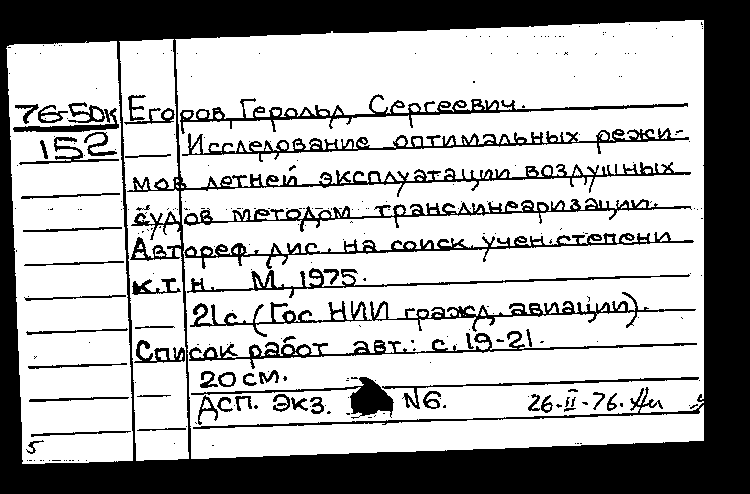 76-50к Егоров, Герольд Сергеевич.
152 Исследование оптимальных режи-
мов летней эксплуатации воздушных
судов методом транслинеаризации.
Автореф. дис. на соиск. учен. степени
к.т.н. М., 1975.
21с. (Гос НИИ гражд. авиации).
Список работ авт.: с. 19-21.
20 см.
ДСП. Экз. N6. 26-II-76.
5